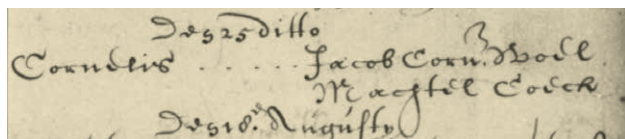 Den 25 ditto
Cornelis . . . . . . Jacob Corn. Woel
Machtel Coeck
Den 18. Augusty